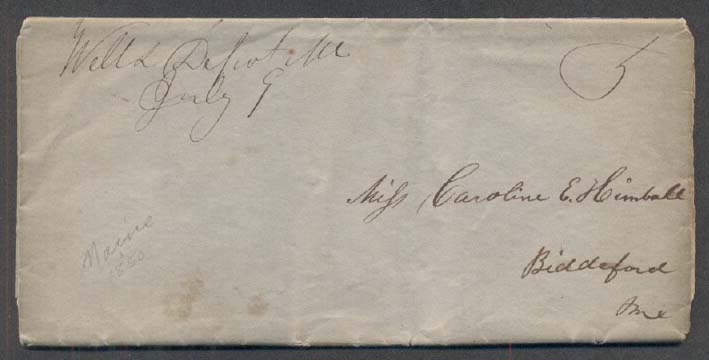 Wells Depot Me
July 9
5
Miss Caroline E. Kimball
Biddeford
Me
Maine
1850